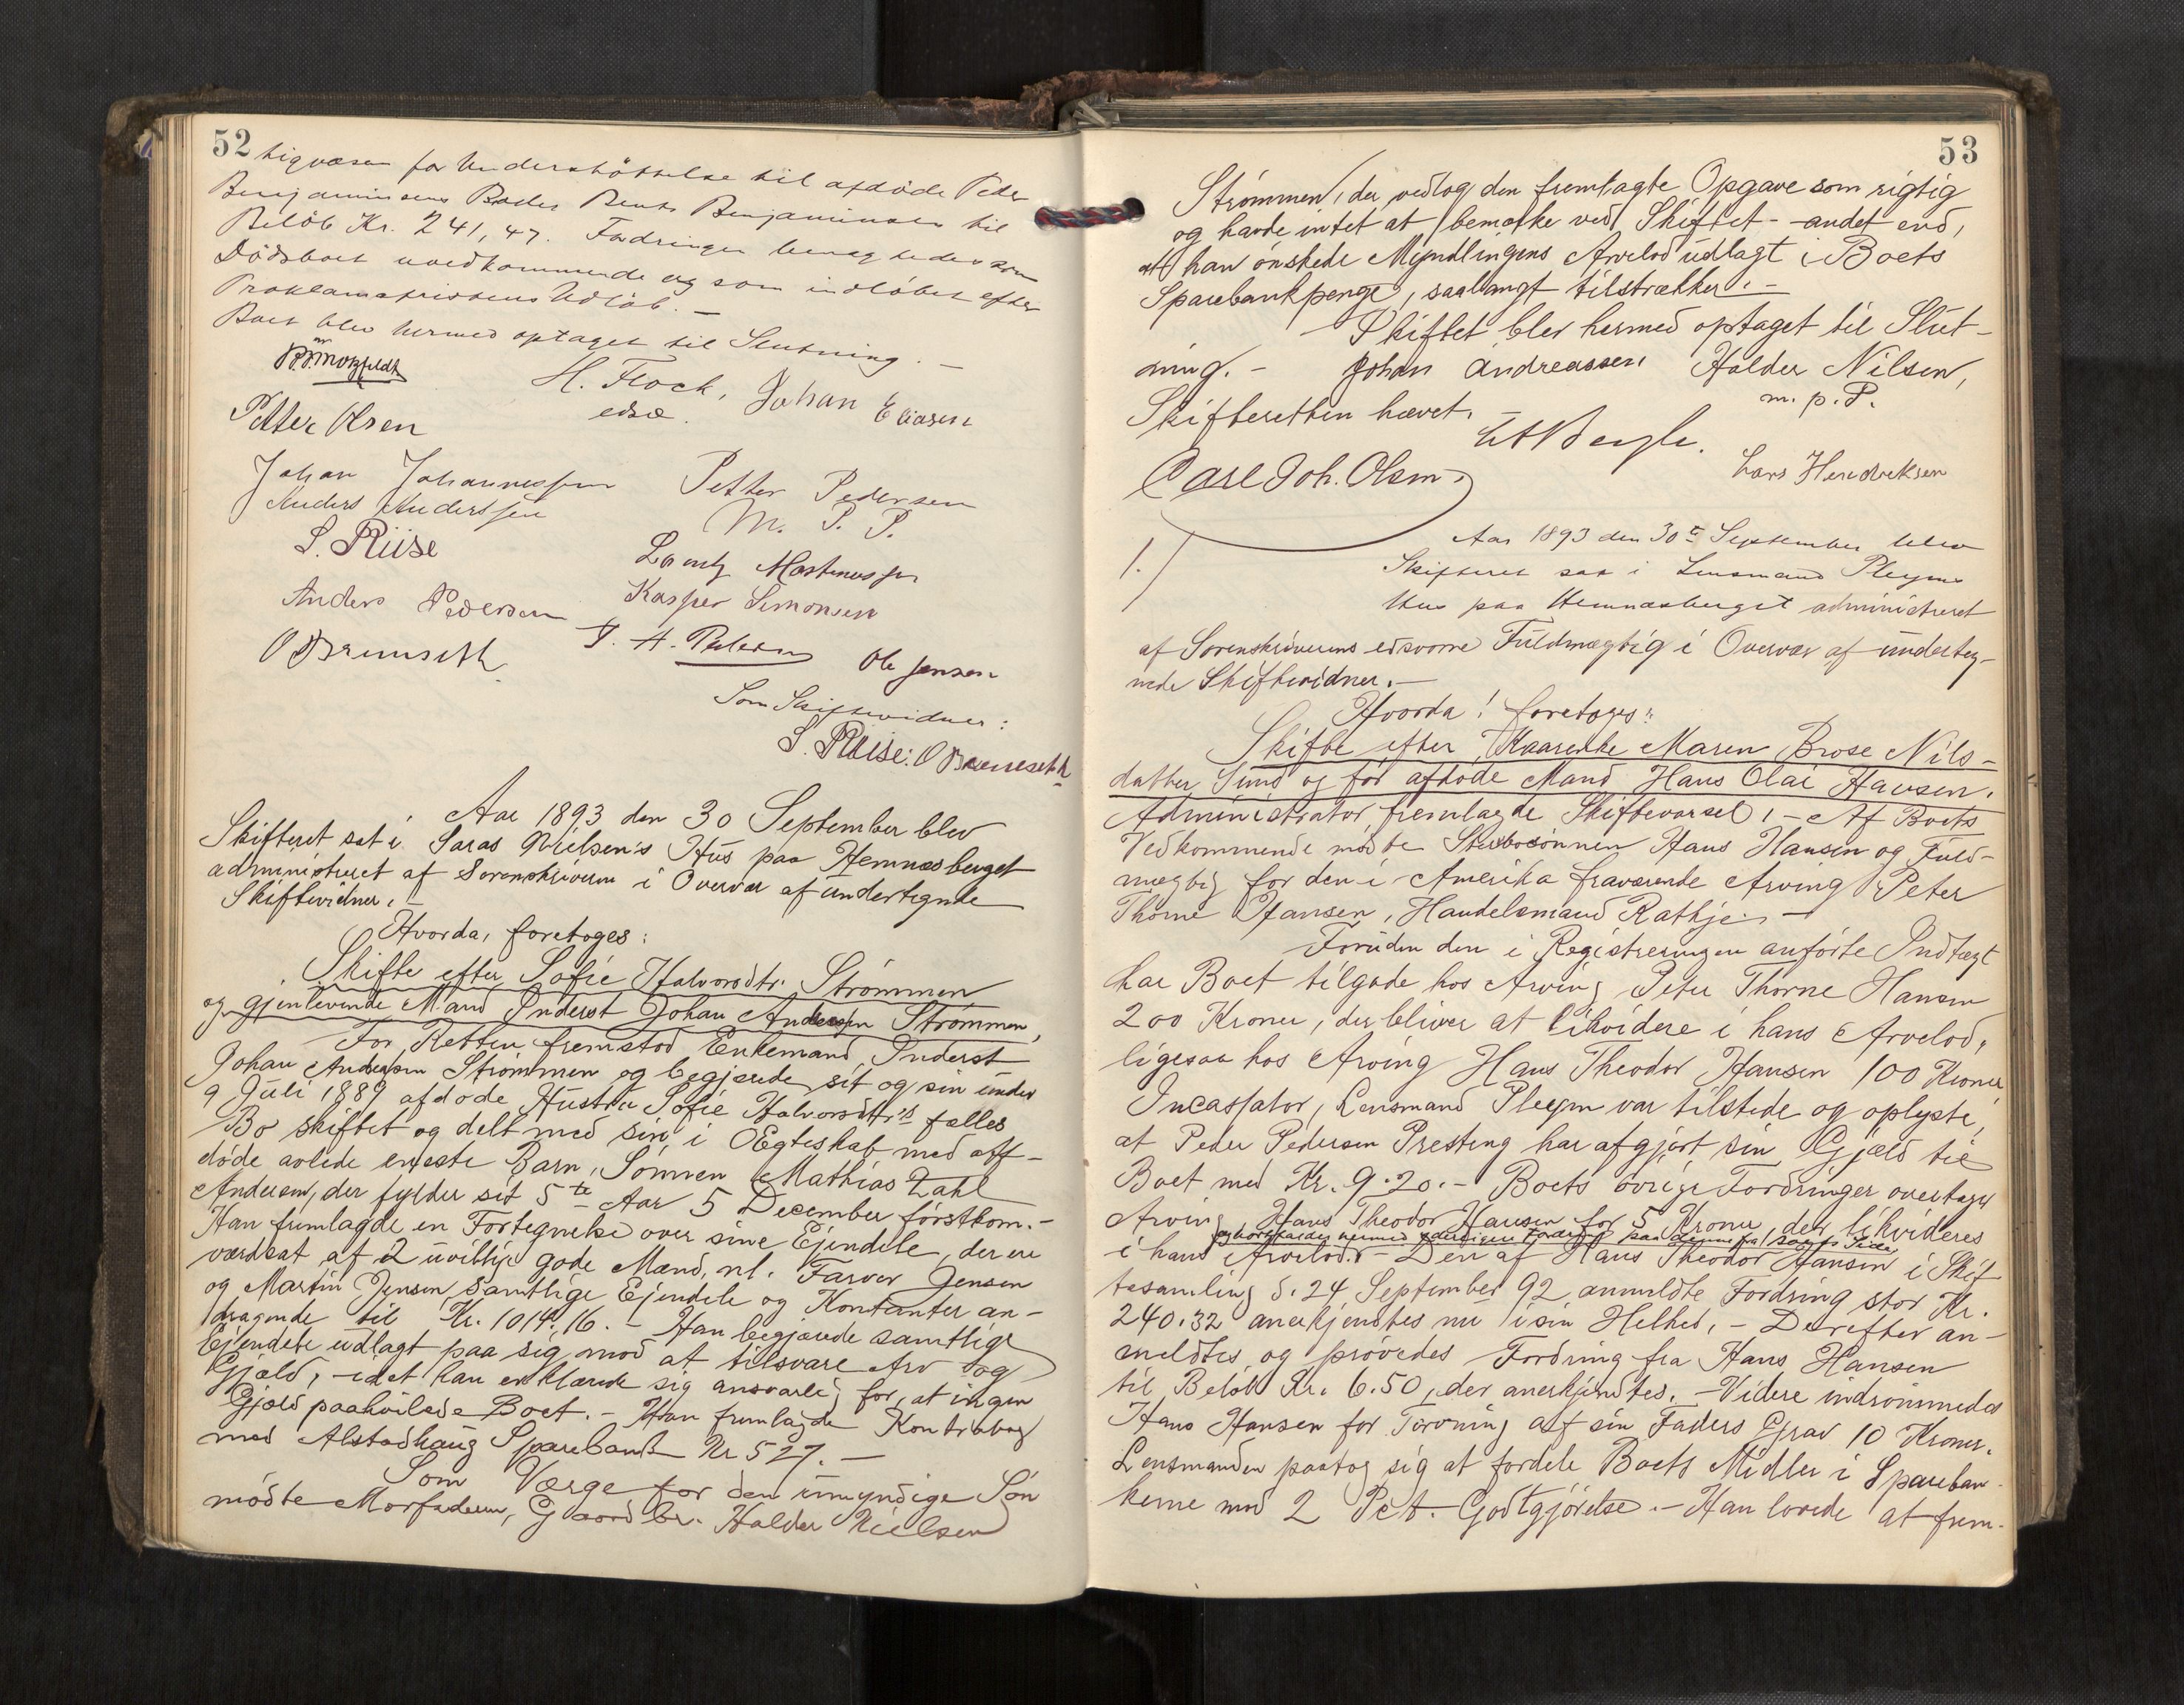 52
tigvæsen for Understøttelse til afdøde Peder
Benjaminsens Broder Bent Benjaminsen til
Beløb Kr. 241,47. Fordringen benægtedes som
Dödsboet uvedkommende og som indløbet efter
Proklamafristens Udløb. –
Boet blev hermed optaget til Slutning. –
H. Flock, Johan Eliasen
edsv.
Petter Olsen
Johan Johannessen Petter Pedersen
Anders Anderssen M. P. P.
S. Riise Lorentz Martinussen
Anders Pedersen Kasper Simonsen
O Brennseth J. A. Pedersen Ole Jensen
Som Skiftevidner:
S. Riise: O Brennseth
Aar 1893 den 30 September blev
Skifteret sat i Saras Nielsen's Hus paa Hemnæsberget
administreret af Sorenskriveren i Overvær af undertegnede
Skiftevidner. –
Hvorda, foretoges:
Skifte efter Sofie Halvorsdtr. Strömmen
og gjenlevende Mand Inderst Johan Anderssen Strömmen,
For Retten fremstod Enkemand, Inderst
Johan Anderssen Strömmen og begjærede sit og sin under
9 Juli 1889 afdöde Hustru Sofie Halvorsdtr's fælles
Bo skiftet og delt med sin i Ægteskab med af-
döde avlede eneste Barn, Sönnen Mathias Zahl
Andersen, der fylder sit 5te Aar 5 December förstkom. –
Han fremlagde en Fortegnelse over sine Ejendele, der ere
værdsat af 2 uvillige gode Mænd, nl. Farver Jensen
og Martin Jensen, samtlige Ejendele og Kontanter an-
dragende til Kr. 1014,16. – Han begjærede samtlige
Ejendele udlagt paa sig mod at tilsvare Arv og
Gjæld, – idet han erklærede sig ansvarlig for, at ingen
Gjæld paahvilede Boet. – Han fremlagde Kontrabog
med Alstadhaug Sparebank Nr 527. –
Som Værge for den umyndige Sön
mödte Morfaderen, Gaardbr. Halder Nielsen
53
Strömmen, der vedtog den fremlagte Opgave som rigtig
og havde intet at bemærke ved Skiftet – andet end,
at han önskede Myndlingens Arvelod udlagt i Boets
Sparebankpenge, saalangt tilstrækker. –
Skiftet blev hermed optaget til Slut-
ning. – Johan Andreassen Halder Nilsen,
m. p. P.
Skifteretten hævet. –
Carl Joh. Olsen. Lars Hendriksen
Aar 1893 den 30te September blev
1. Skifteret sat i Lensmand Pleyms
Hus paa Hemnæsberget administreret
af Sorenskriverens edsvorne Fuldmægtig i Overvær af underteg-
nede Skiftevidner. –
Hvorda! foretoges:
Skifte efter Kaarenke Maren Brose Nils-
datter Sund og för afdöde Mand Hans Olai Hansen.
Administrator fremlagde Skiftevarsel. – Af Boets
Vedkommende mödte Stervbosönnen Hans Hansen og Fuld-
mægtig for den i Amerika fraværende Arving Peter
Thorne Hansen, Handelsmand Rathje. –
Foruden den i Registreringen anförte Indtægt
har Boet tilgode hos Arving Peter Thorne Hansen
200 Kroner, der bliver at likvidere i hans Arvelod,
ligesaa hos Arving Hans Theodor Hansen 100 Kroner
Incassator, Lensmand Pleym var tilstede og oplyste,
at Peder Pedersen Presteng har afgjort sin Gjæld til
Boet med Kr. 9.20. – Boets övrige Fordringer overtages
Arving Hans Theodor Hansen for 5 Kroner, der likvideres
og bortfalder hermed yderligere Fordring paa denne fra Side
i hans Arvelod. – Den af Hans Theodor Hansen i Skif-
tesamling d. 24 September 92 anmeldte Fordring stor Kr.
240.32 anerkjendtes nu i sin Helhed, – Derefter an-
meldtes og prövedes Fordring fra Hans Hansen
til Belöb Kr. 6.50, der anerkjendtes. – Videre indrömmedes
Hans Hansen for Törvning af sin Faders Grav 10 Kroner.
Lensmanden paatog sig at fordele Boets Midler i Spareban-
kerne mod 2 Pct. Godtgjörelse. – Han lovede at frem-